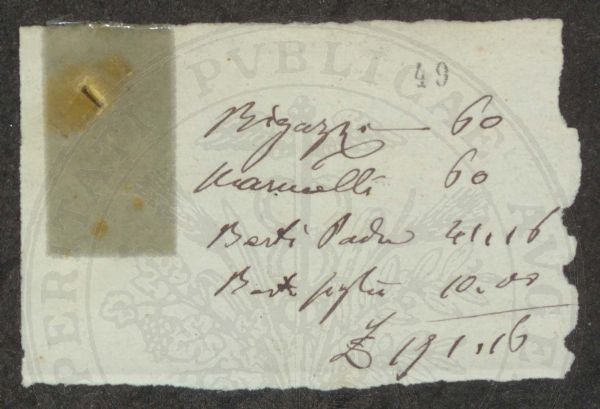 PVBLICAE
49
Bigazzi 60
Marucelli 60
Berti Padre 41.16
Berti figlio 10.00
£ 171.16